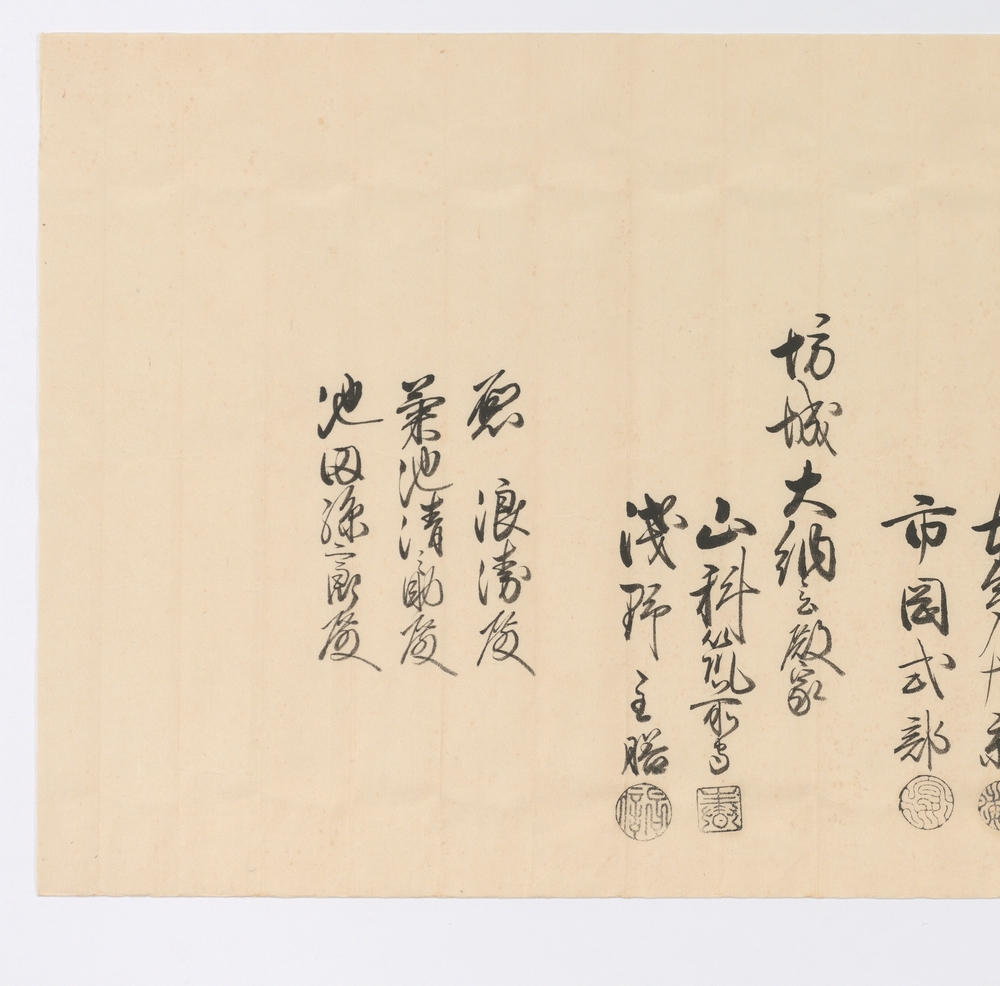 市岡式部
坊城大納言殿家
山科筑前守
浅野主膳
殿 浪濤殿
菊池清助殿
池田孫三郎殿